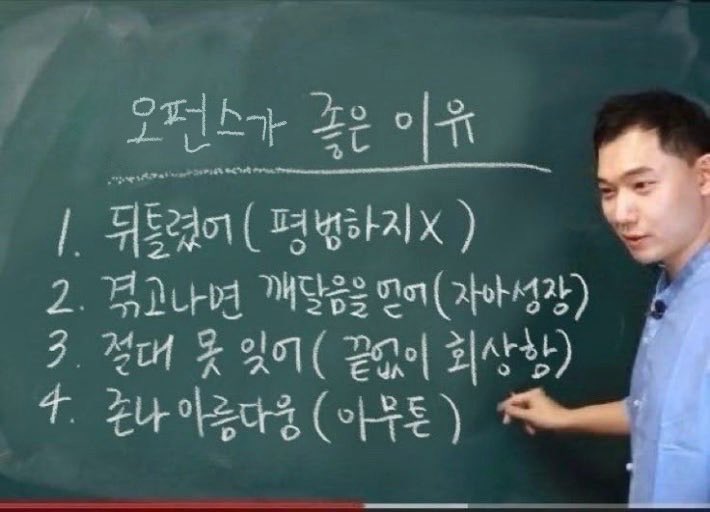 오펀스가 좋은 이유
1. 뒤틀렸어 (평범하지X)
2. 겪고나면 깨달음을 얻어 (자아성장)
3. 절대 못 잊어 (끝없이 회상함)
4. 존나 아름다움 (아무튼)